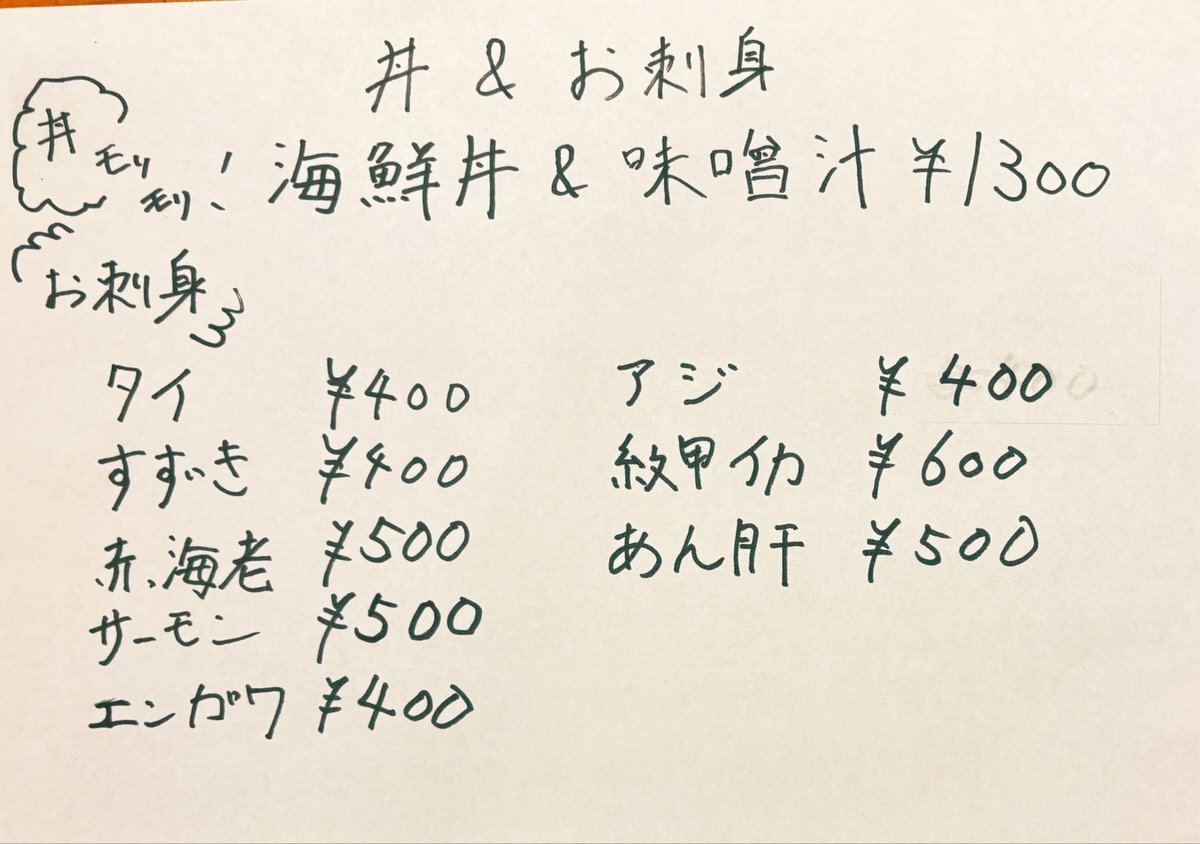 丼 & お刺身
丼
モリ
モリ!
海鮮丼 & 味噌汁 ¥1300
お刺身
タイ ¥400
すずき ¥400
赤海老 ¥500
サーモン ¥500
エンガワ ¥400
アジ ¥400
紋甲イカ ¥600
あん肝 ¥500